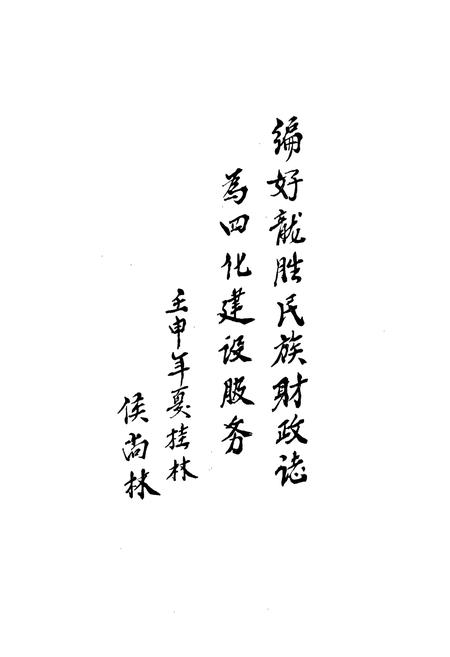 编好龍胜民族財政誌
為四化建设服务
壬申年夏桂林
侯尚林